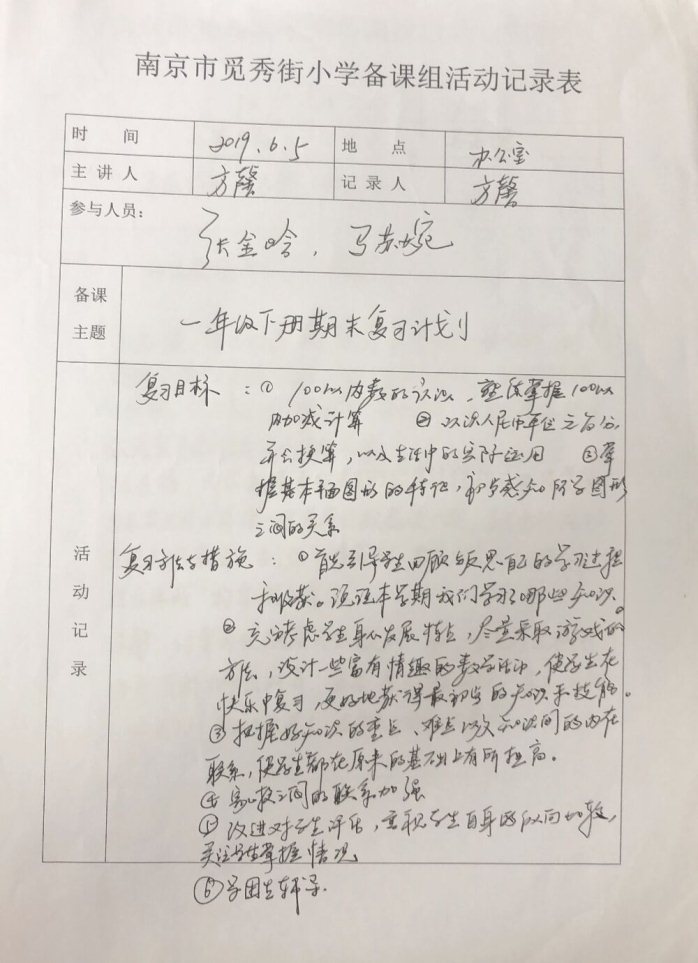 南京市觅秀街小学备课组活动记录表
时 间 2019.6.5 地 点 办公室
主讲人 方馨 记录人 方馨
参与人员：
张金晗，马苏婉
备课主题 一年级下册期末复习计划
活动记录
复习目标：① 100以内数的认识，熟练掌握100以
内加减计算 ② 认识人民币单位元角分，
并会换算，以及生活中的实际运用 ③掌
握基本平面图形的特征，初步感知所学图形
之间的关系
复习方法与措施：①首先引导学生回顾与反思自己的学习过程
和收获。说说本学期我们学习了哪些知识。
② 充分考虑学生身心发展特点，尽量采取游戏的
方法，设计一些富有情趣的数学活动，使学生在
快乐中复习，更好地获得最初步的知识和技能。
③把握好知识的重点、难点以及知识间的内在
联系，使学生都在原来的基础上有所提高。
④ 家校之间的联系加强
⑤ 改进对学生评估，重视学生自身的纵向比较，
关注学生掌握情况
⑥学困生辅导.